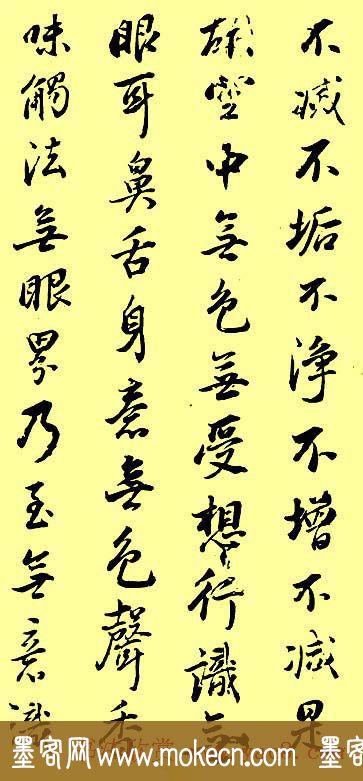 不滅不垢不淨不增不減是
故空中無色無受想行識無
眼耳鼻舌身意無色聲香
味觸法無眼界乃至無意識
墨客网 www.mokecn.com 墨客网